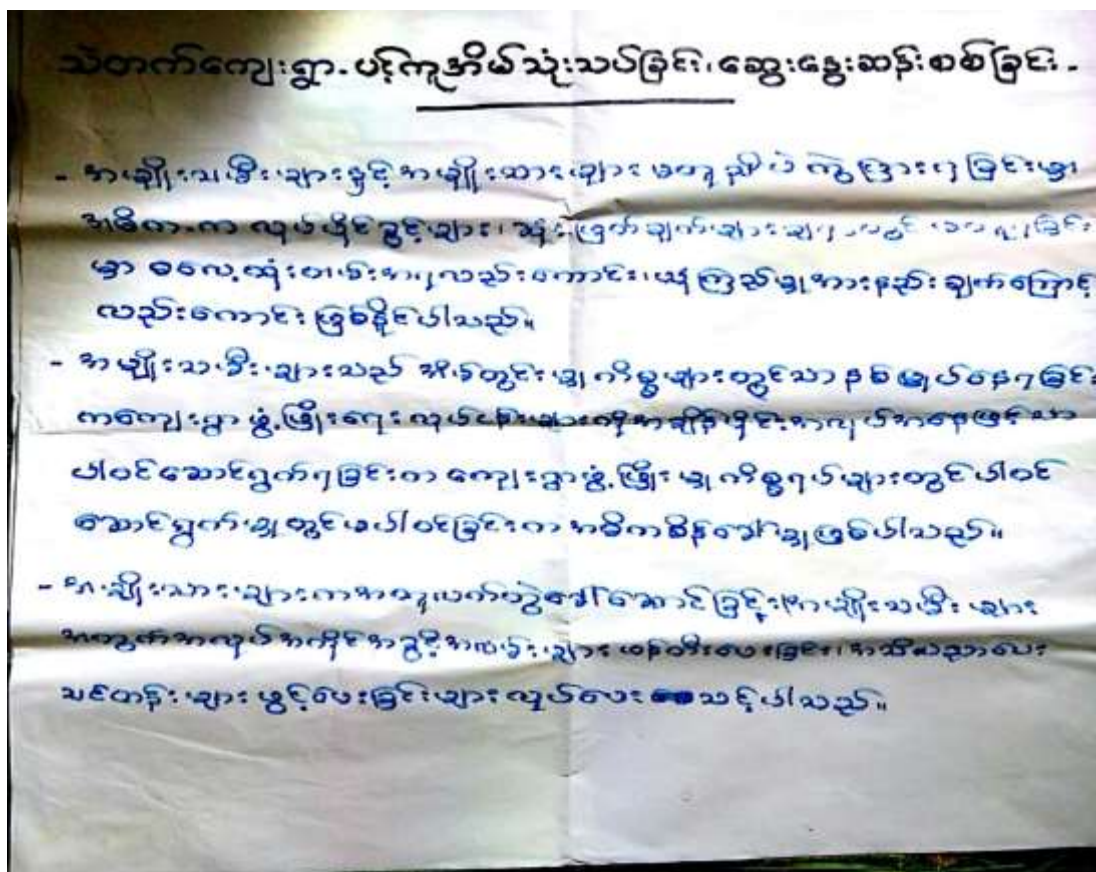 သဲတက်ကျေးရွာ - ပင့်ကူအိမ်သုံးသပ်ခြင်း၊ ဆွေးနွေးဆန်းစစ်ခြင်း -
- အမျိုးသမီးများနှင့် အမျိုးသားများ မတူညီပဲ ကွဲပြားရခြင်းမှာ
အဓိက-က လုပ်ပိုင်ခွင့်များ၊ ဆုံးဖြတ်ချက်များချ ခြင်း
မှာ ဓလေ့ထုံးတမ်းအရလည်းကောင်း၊ ယုံကြည်မှုအားနည်းချက်ကြောင့်
လည်းကောင်း ဖြစ်နိုင်ပါသည်။
- အမျိုးသမီးများသည် အိမ်တွင်းမှုကိစ္စများတွင်သာ နစ်မြုပ်နေရခြင်း
ကကျေးရွာဖွံ့ဖြိုးရေးလုပ်ငန်းများကိုအချိန်ပိုင်းအလုပ်အနေဖြင့်သာ
ပါဝင်ဆောင်ရွက်ရခြင်းက ကျေးရွာဖွံ့ဖြိုးမှုကိစ္စရပ်များတွင်ပါဝင်
ဆောင်ရွက်မှုတွင်မပါဝင်ခြင်းက အဓိကစိန်ခေါ်မှုဖြစ်ပါသည်။
- အမျိုးသားများကအတူလက်တွဲခေါ်ဆောင်ခြင်း၊ အမျိုးသမီးများ
အတွက်အလုပ်အကိုင်အခွင့်အလမ်းများ ဖန်တီးပေးခြင်း၊ အသိပညာပေး
သင်တန်းများ ဖွင့်ပေးခြင်းများလုပ်ပေးသင့်ပါသည်။